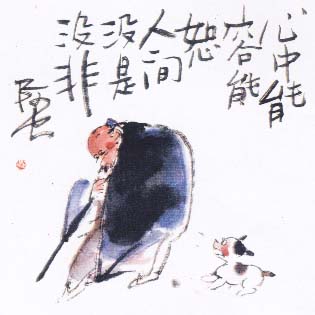 心中能
容能
恕
人间
没是
没非